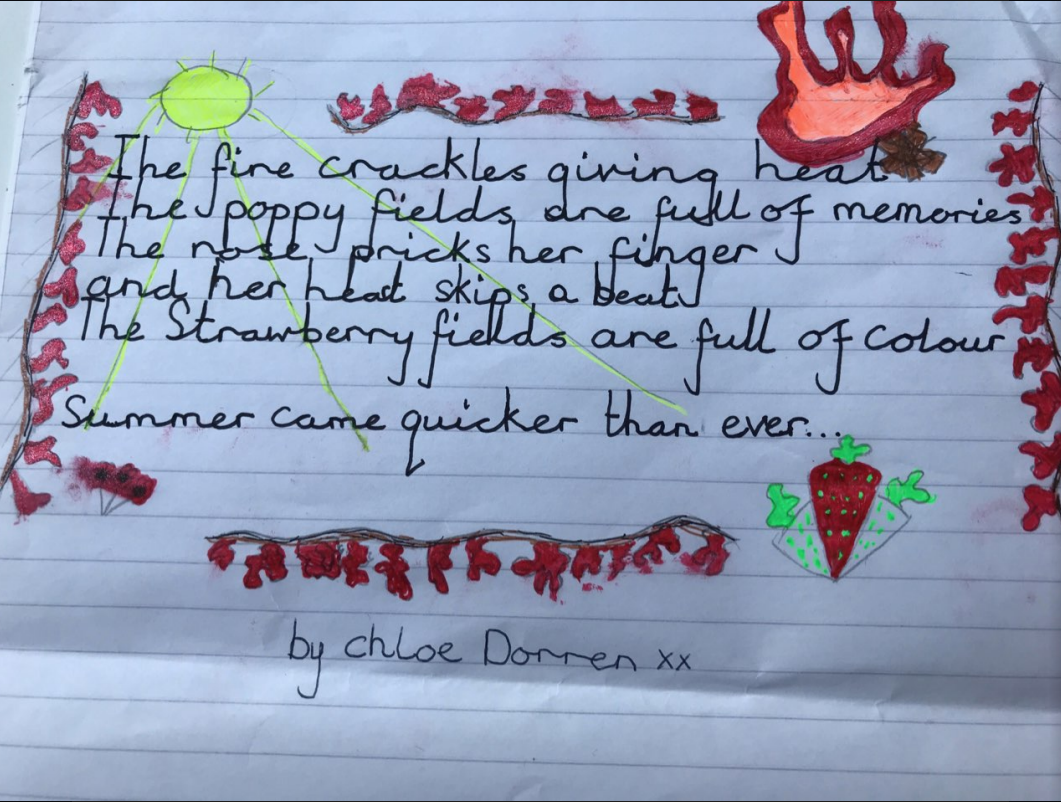 The fire crackles giving heat.
The poppy fields are full of memories
The rose pricks her finger
and her heart skips a beat
The Strawberry fields are full of colour
Summer came quicker than ever...
by Chloe Dorren xx